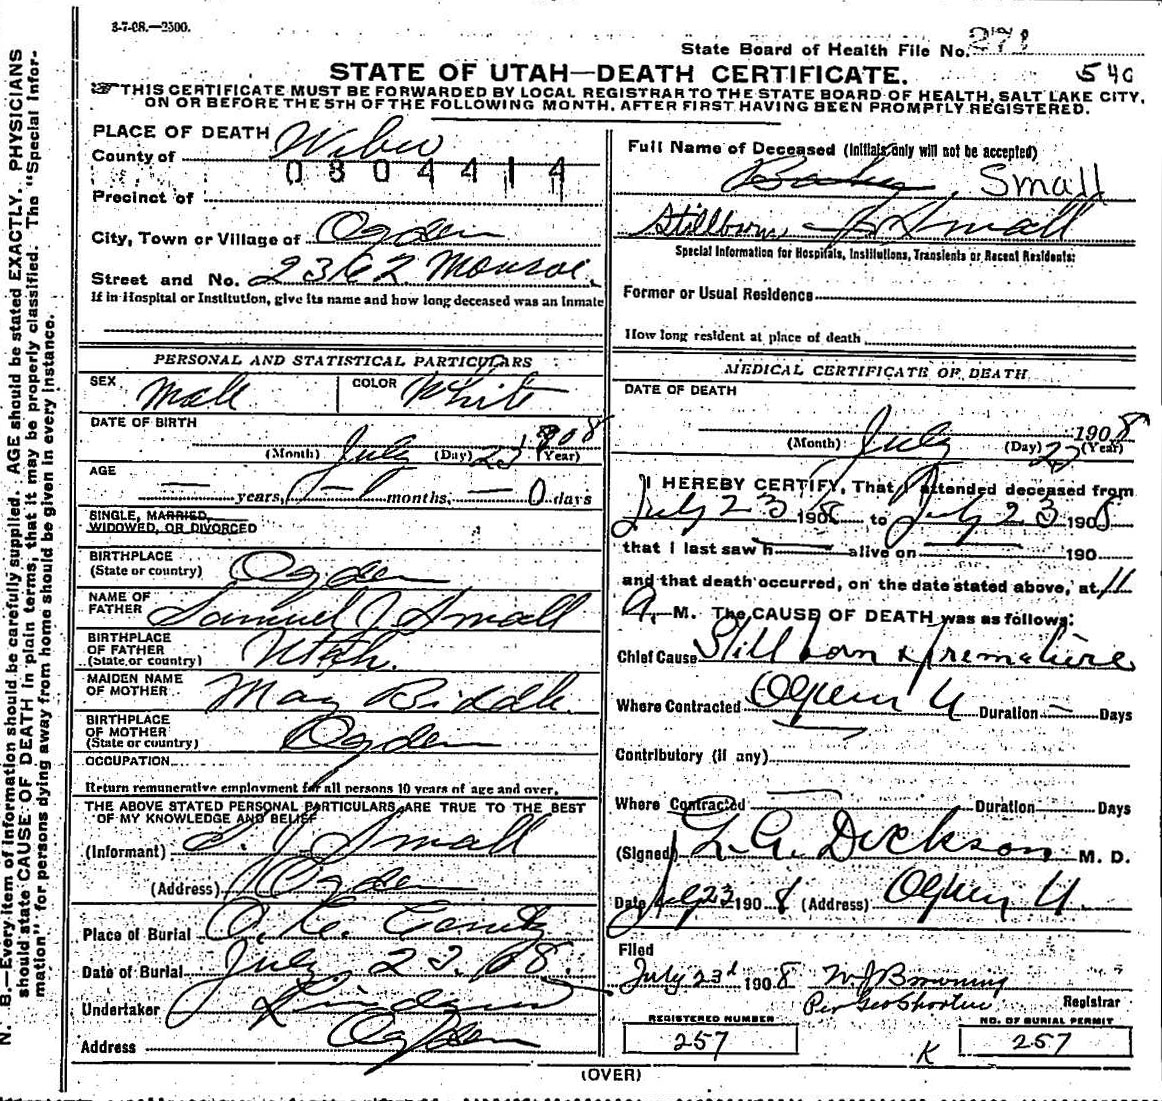 3-7-08.—2500.
State Board of Health File No. 271
STATE OF UTAH—DEATH CERTIFICATE.
540
THIS CERTIFICATE MUST BE FORWARDED BY LOCAL REGISTRAR TO THE STATE BOARD OF HEALTH, SALT LAKE CITY,
ON OR BEFORE THE 5TH OF THE FOLLOWING MONTH, AFTER FIRST HAVING BEEN PROMPTLY REGISTERED.
N. B.—Every item of information should be carefully supplied. AGE should be stated EXACTLY. PHYSICIANS
should state CAUSE OF DEATH in plain terms, that it may be properly classified. The "Special Infor-
mation" for persons dying away from home should be given in every instance.
PLACE OF DEATH
County of Weber
0304414
Precinct of
City, Town or Village of Ogden
Street and No. 2362 Monroe.
If in Hospital or Institution, give its name and how long deceased was an inmate
PERSONAL AND STATISTICAL PARTICULARS
SEX Male COLOR White
DATE OF BIRTH
July 23 1908
(Month) (Day) (Year)
AGE
— years, — months, — 0 days
SINGLE, MARRIED,
WIDOWED, OR DIVORCED
BIRTHPLACE
(State or country) Ogden
NAME OF
FATHER Samuel J Small
BIRTHPLACE
OF FATHER
(State or country) Utah.
MAIDEN NAME
OF MOTHER May Biddle.
BIRTHPLACE
OF MOTHER
(State or country) Ogden
OCCUPATION
Return remunerative employment for all persons 10 years of age and over.
THE ABOVE STATED PERSONAL PARTICULARS ARE TRUE TO THE BEST
OF MY KNOWLEDGE AND BELIEF
(Informant) S. J. Small
(Address) Ogden
Place of Burial
Date of Burial July 23. 08.
Undertaker Lindquist
Address Ogden
Full Name of Deceased (Initials only will not be accepted)
Baby, Small
Stillborn Small
Special Information for Hospitals, Institutions, Transients or Recent Residents:
Former or Usual Residence
How long resident at place of death
MEDICAL CERTIFICATE OF DEATH
DATE OF DEATH
July 23 1908
(Month) (Day) (Year)
I HEREBY CERTIFY, That I attended deceased from
July 23 1908 to July 23 1908
that I last saw h alive on 190
and that death occurred, on the date stated above, at 11
A. M. The CAUSE OF DEATH was as follows:
Chief Cause Still born & premature
Where Contracted Ogden U Duration — Days
Contributory (if any)
Where Contracted Duration Days
(Signed) Dickson M. D.
Date July 23 1908 (Address) Ogden U.
Filed
July 23d 1908 W J Browning
Per Geo Shorten Registrar
REGISTERED NUMBER
257
K
NO. OF BURIAL PERMIT
257
(OVER)